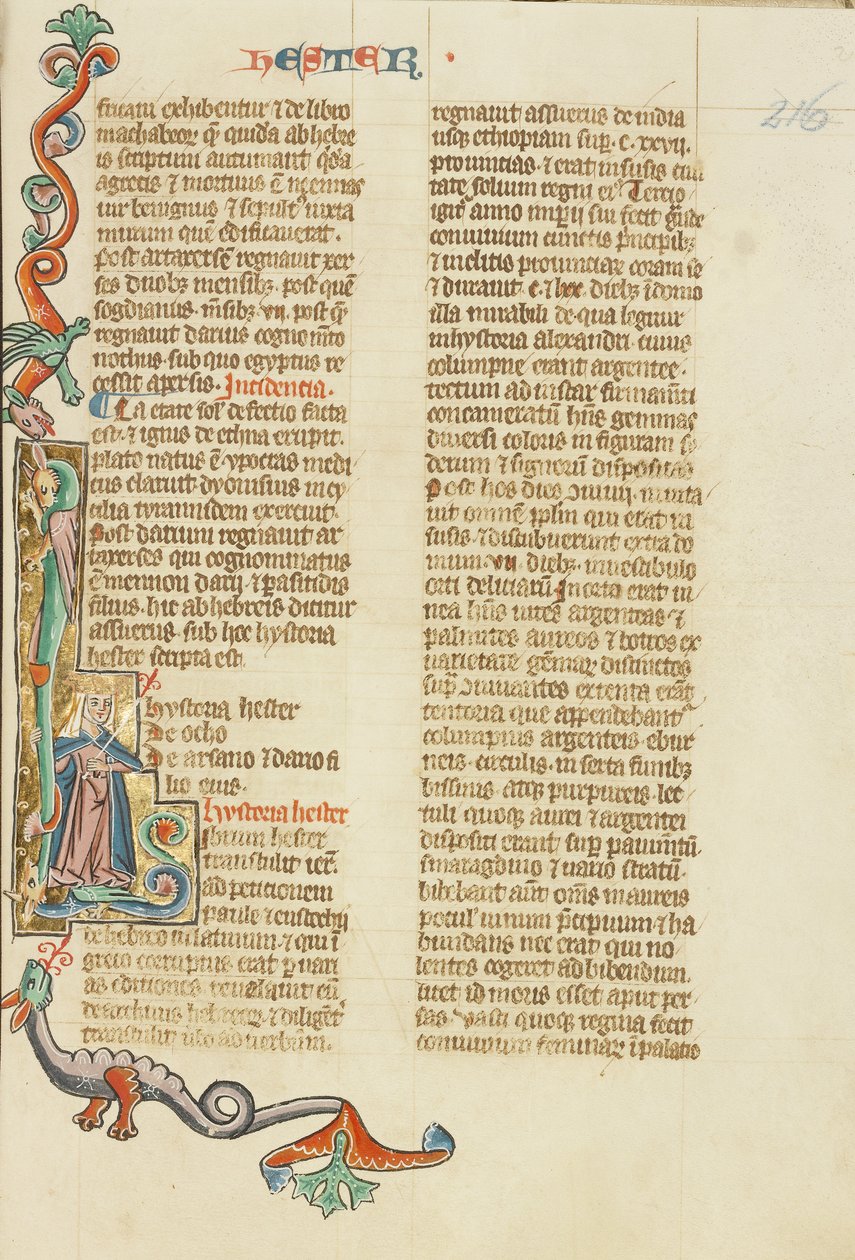 HESTER.
216
ficam exhibentur ⁊ de libro
machabeoꝝ qͥ quida ab hebre
is scriptum autumant
agreeis ⁊ mortuus ē neemias
uir benignus ⁊ sepultꝰ iuxta
murum quē edificauerat.
Post artaxersē regnauit xer
ses duobꝫ mensibꝫ. post quē
sogdianus. mͥsibꝫ. vij. post qͥ
regnauit darius cogno mͥto
nothus. sub quo egyptus re
cessit apersis. Incidencia.
Ea etate sol defectio facta
est. ⁊ ignis de ethna erupit.
plato natus ē. ypocras medi
cus claruit dyonisius in cy
cilia tyrannidem exercuit.
Post darium regnauit ar
taxerses qui cognominatus
ē mennon darij ⁊ pasitidis
filius. hic ab hebreis dicitur
assuerus. sub hoc hystoria
hester scripta est.
Hystoria hester
De ocho
De arsano ⁊ dario fi
lio eius.
Hystoria hester
Librum hester
transtulit ier̄.
ad peticionem
paule ⁊ eustochij
de hebreo in latinum. ⁊ qui ī
greco corruptus erat ꝑ uari
as editiones reuelauit eū
de archiuis hebreoꝝ ⁊ diligēt̉
transtulit uͥbo ad uerbum.
regnauit assuerus de india
usqꝫ ethiopiam suꝑ. c. xxvij.
prouincias. ⁊ erat in susis ciui
tate solium regni eiꝰ Tercio
igit̉ anno imperij sui fecit gͣnde
conuiuium cunctis pͥncipibꝫ
⁊ inclitis prouinciaꝝ coram se
⁊ durauit. c. ⁊ lxxx. diebꝫ ī domo
illa mirabili de qua legitur
in hystoria alexandri. cuius
columpne erant argentee.
tectum ad instar firmamͥti
concameratū hn̄s gemmas
diuersi coloris in figuram sy
derum ⁊ signorū dispositas
Post hos dies ↄuiuij. inuita
uit omnē ppl̄m qui erat in
susis. ⁊ discubuerunt extra do
mum. vij. diebꝫ. in uestibulo
orti deliciarū. In orto erat ui
nea hn̄s uites argenteas ⁊
palmites aureos ⁊ botros ex
uarietate gēmaꝝ distinctos
suꝑ ↄuiuantes extenta erāt
tentoria que appendebant̉
columpnis argenteis. ebur
neis. circulis. inserta funibꝫ
bissinis. atqꝫ purpureis. lec
tuli quoqꝫ aurei ⁊ argentei
dispositi erant suꝑ pauimͥtū
smaragdino ⁊ uario stratū.
bibebant aut̄ om̄s in aureis
pocul̉ uinum pͥcipuum ⁊ ha
bundans nec erat qui no
lentes cogeret ad bibendum.
licet id moris esset aput per
sas. Vasti quoqꝫ regina fecit
conuiuium feminaꝝ ī palatio